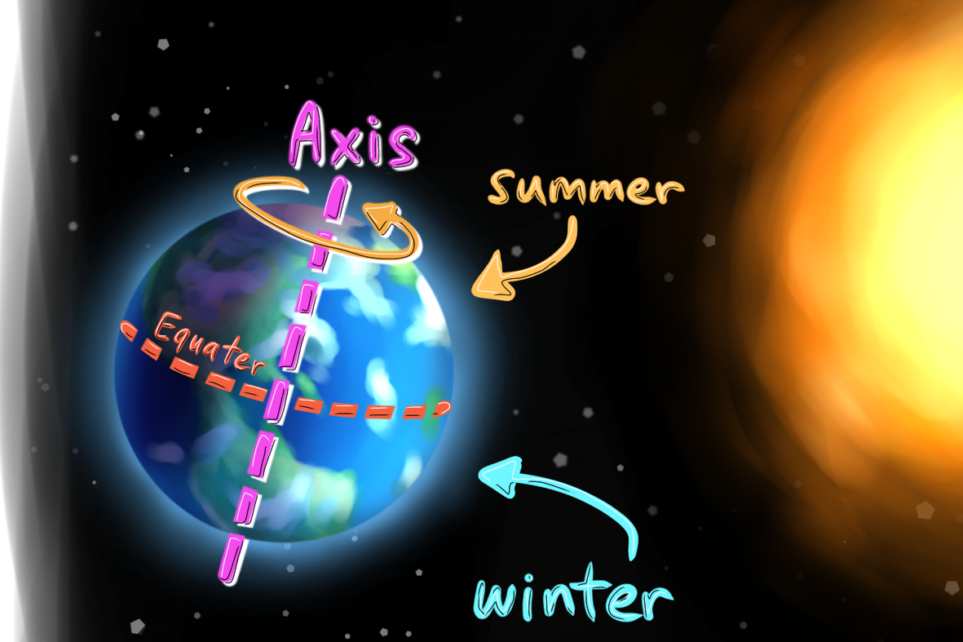 Axis
summer
Equater
winter